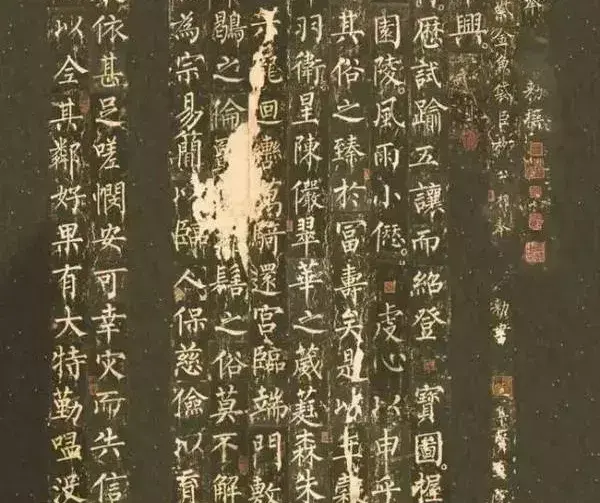 勑撰
紫金魚袋臣柳公權奉 勑書
興。
歷試踰五讓而紹登 寶圖。握
園陵。風雨小愆。虔心以申乎
其俗之臻於富壽矣是以年穀
羽衛星陳儼翠華之葳蕤森朱
迴鑾萬騎還宮臨端門敷
鶡之倫 之俗莫不解
為宗易簡以臨人保慈儉以育
依甚足嗟憫安可幸災而失信
以全其鄰好果有大特勤嗢没